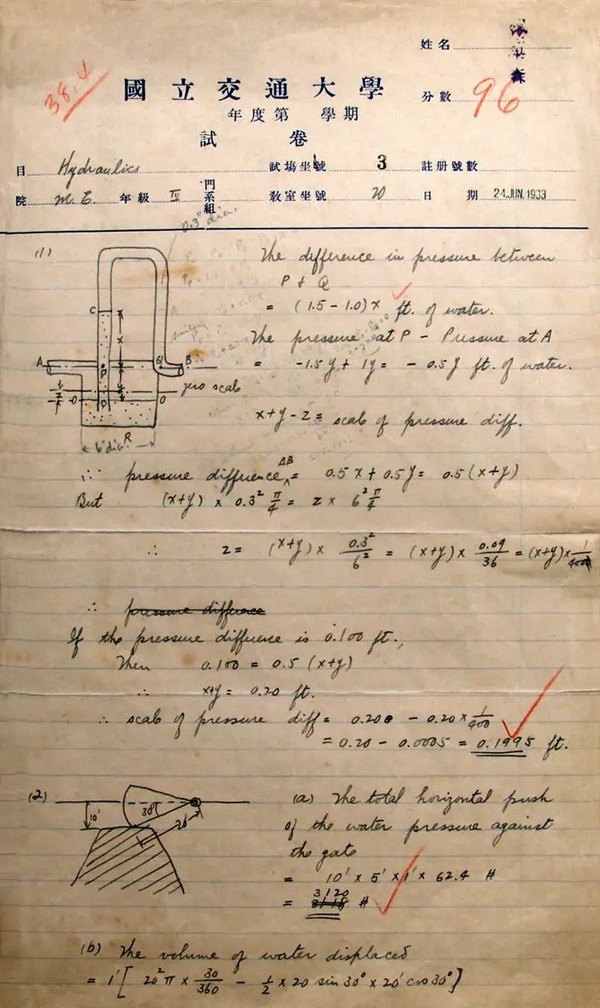 姓名
38,4
國立交通大學
分數 96
年度第 學期
試卷
目 Hydraulics 試場坐號 3 註册號數
院 M.E. 年級 IV 門系組 教室坐號 20 日期 24.JUN.1933
0.3" dia.
(1)
The difference in pressure between
P & Q
= (1.5 - 1.0)x ft. of water.
The pressure at P - Pressure at A
= -1.5y + 1y = - 0.5y ft. of water.
x+y-z = scale of pressure diff.
C
x
A
P
Q
B
y
zero scale
z
O
D
O
R
6" dia.
∴ pressure difference AB = 0.5x + 0.5y = 0.5(x+y)
But (x+y) × 0.3² π/4 = z × 6² π/4
∴ z = (x+y) × 0.3²/6² = (x+y) × 0.09/36 = (x+y) × 1/400
∴ pressure difference
If the pressure difference is 0.100 ft.,
Then 0.100 = 0.5 (x+y)
∴ x+y = 0.20 ft.
∴ scale of pressure diff = 0.200 - 0.20 × 1/400
= 0.20 - 0.0005 = 0.1995 ft.
(2)
10'
30°
20'
(a) The total horizontal push
of the water pressure against
the gate
= 10' × 5' × 1' × 62.4 #
= 3120 #
(b) The volume of water displaced
= 1' [ 20² π × 30/360 - 1/2 × 20 sin 30° × 20' cos 30° ]